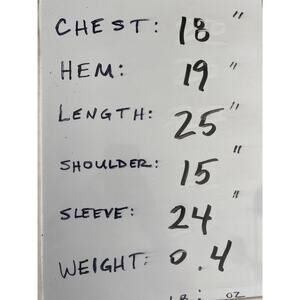 CHEST: 18"
HEM: 19"
LENGTH: 25"
SHOULDER: 15"
SLEEVE: 24"
WEIGHT: 0.4
LB: OZ